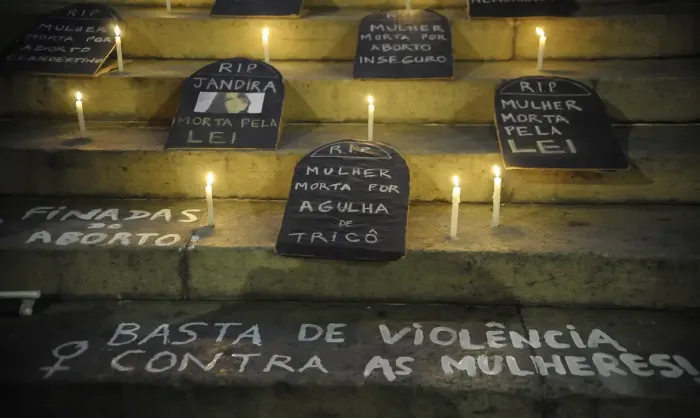 RIP
MULHER
MORTA POR
ABORTO
CLANDESTINO
MULHER
MORTA POR
ABORTO
INSEGURO
RIP
JANDIRA
MORTA PELA
LEI
RIP
MULHER
MORTA
PELA
LEI
RIP
MULHER
MORTA POR
AGULHA
DE
TRICÔ
FINADAS
DO
ABORTO!
BASTA DE VIOLÊNCIA
CONTRA AS MULHERES!